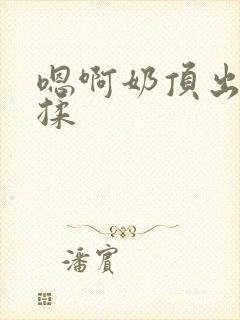 嗯啊奶頂出
揉
潘賓